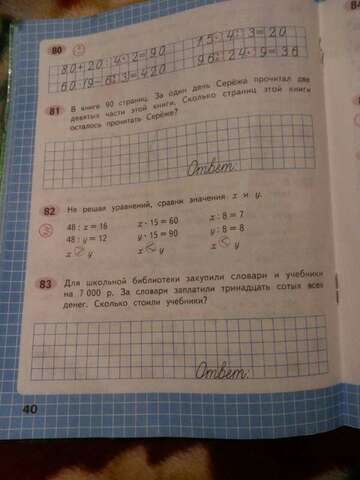 80
80+20:4·2=90
75:4·3=20
60·19-6:3=420
96:24·9=36
81 В книге 90 страниц. За один день Серёжа прочитал две
девятых части этой книги. Сколько страниц этой книги
осталось прочитать Серёже?
Ответ:
82 Не решая уравнений, сравни значения x и y.
48 : x = 16 x · 15 = 60 x : 8 = 7
48 : y = 12 y · 15 = 90 y : 8 = 8
x y x < y x < y
83 Для школьной библиотеки закупили словари и учебники
на 7 000 р. За словари заплатили тринадцать сотых всех
денег. Сколько стоили учебники?
Ответ:
40